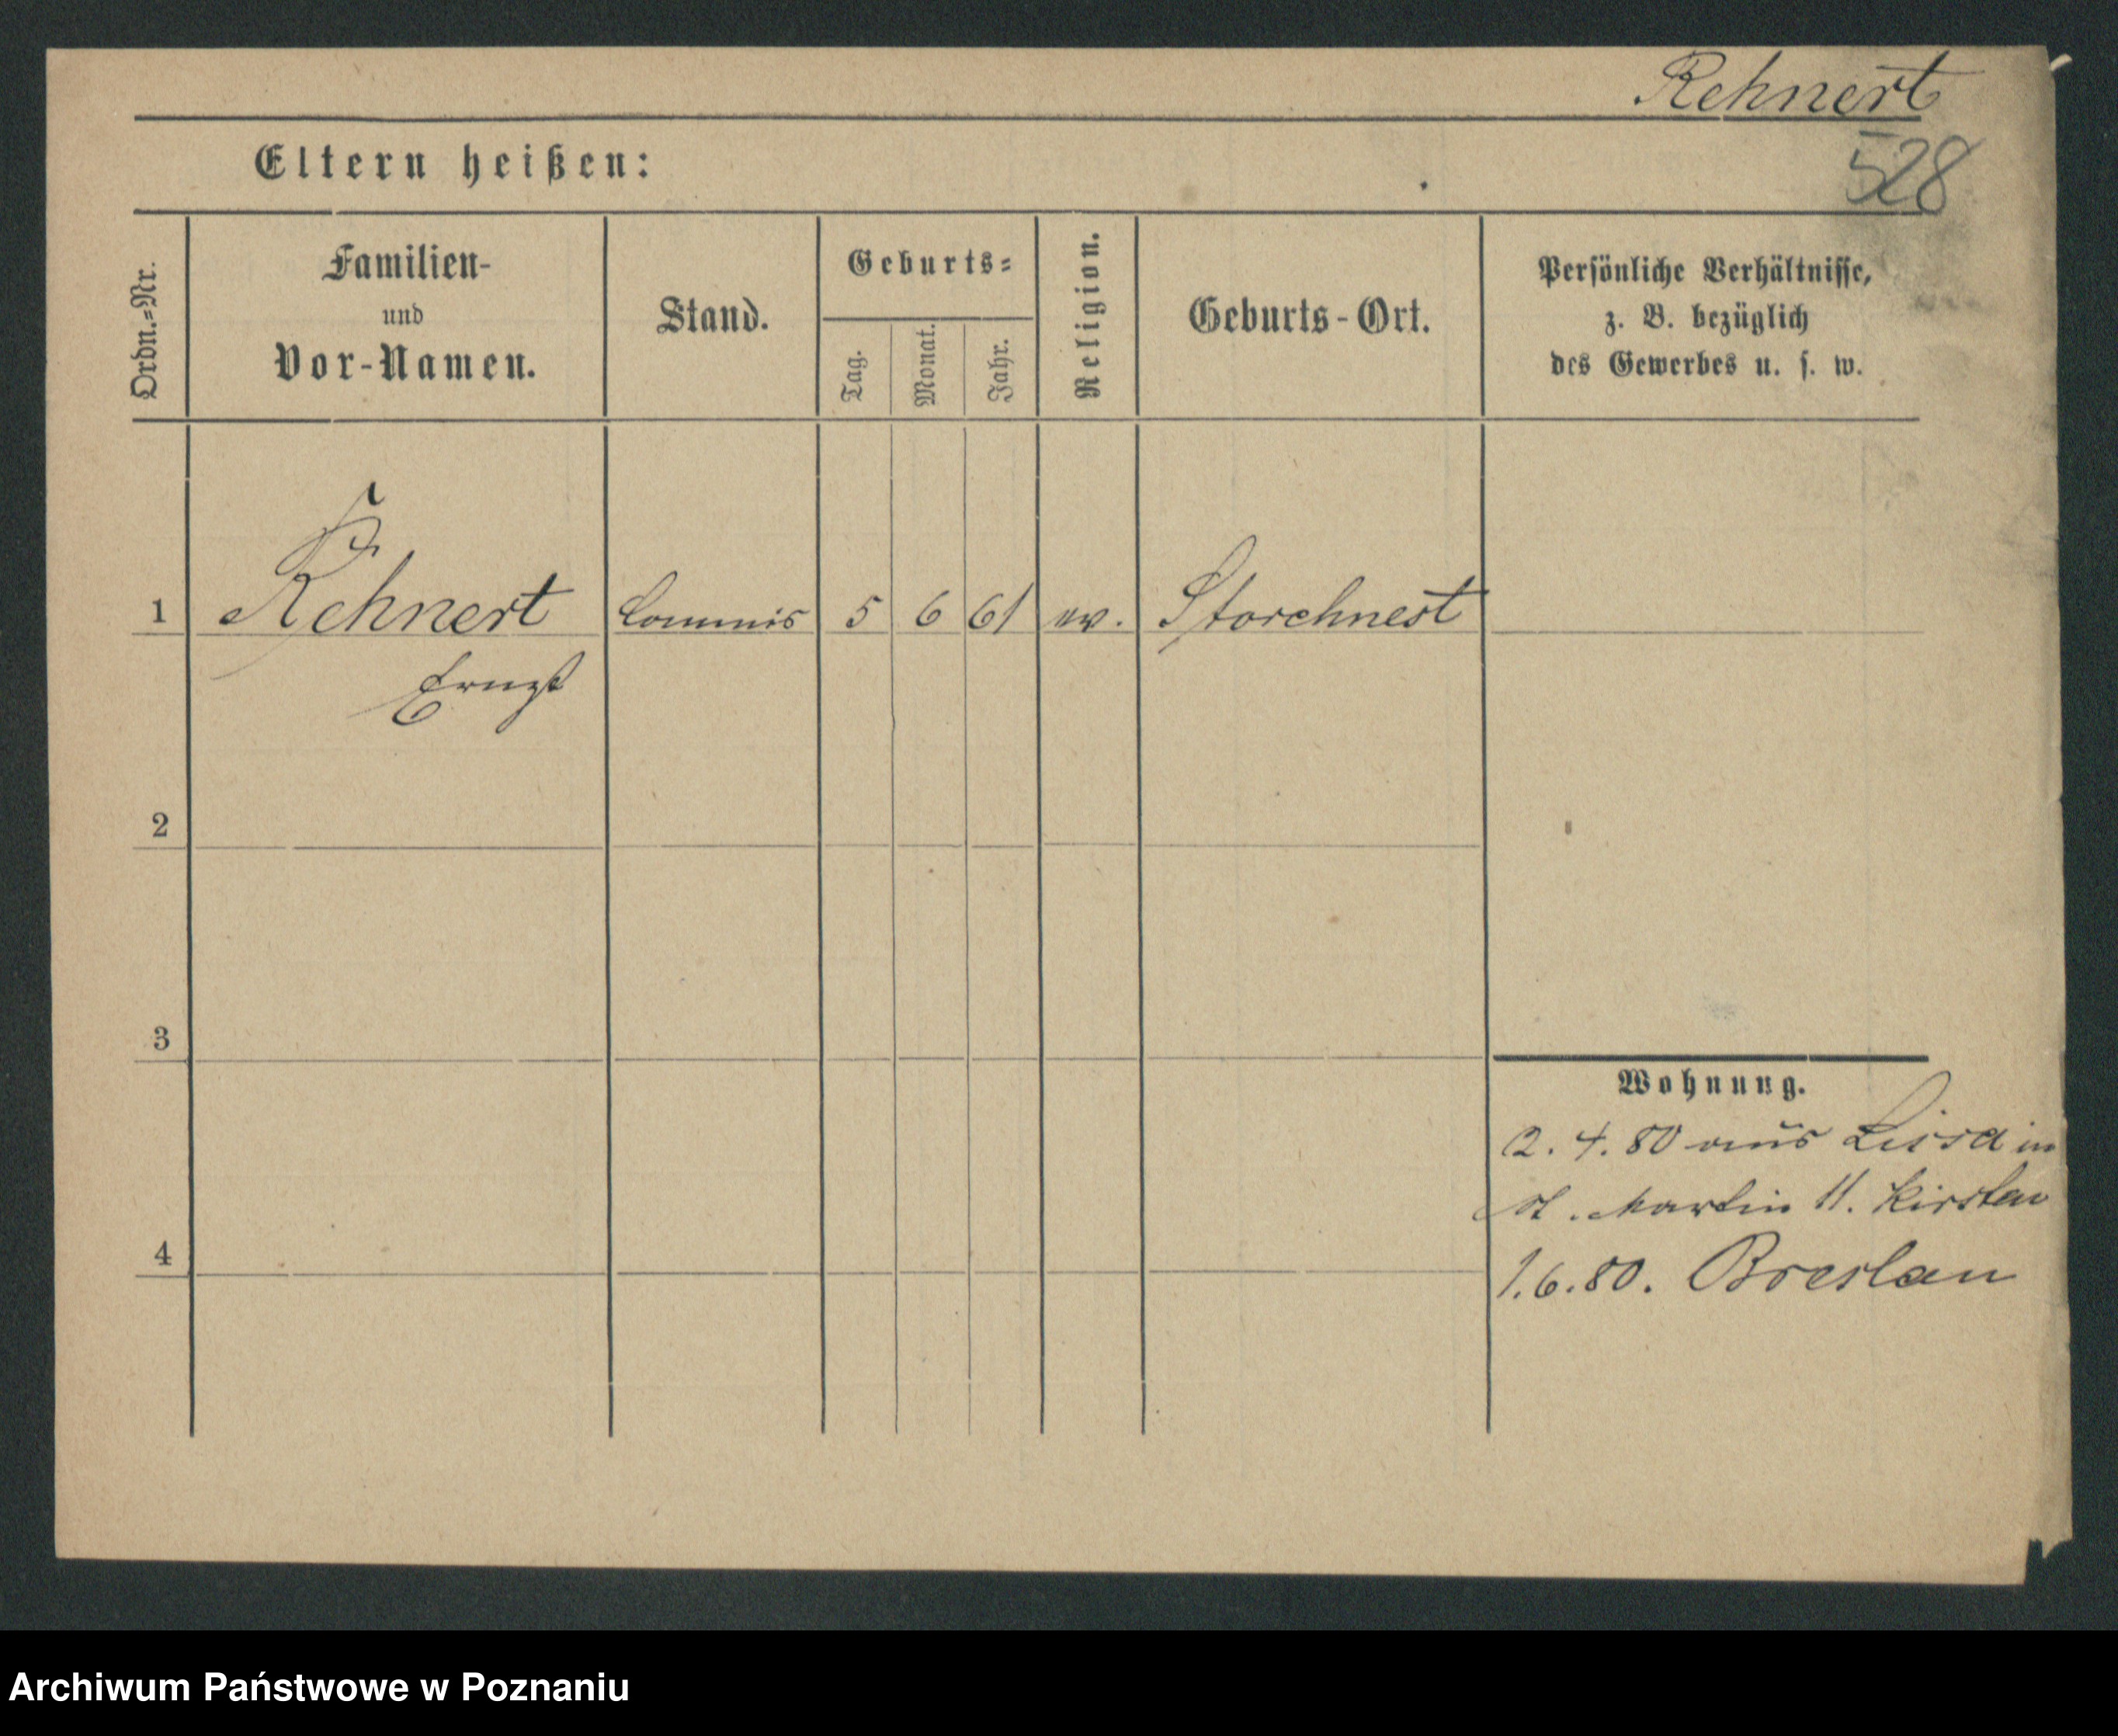 Rehnert
Eltern heißen:
528
Ordn.=Nr.
Familien-
und
Vor-Namen.
Stand.
Geburts=
Tag.
Monat.
Jahr.
Religion.
Geburts-Ort.
Persönliche Verhältnisse,
z. B. bezüglich
des Gewerbes u. s. w.
1 Rehnert Commis 5 6 61 ev. Storchnest
Ernst
2
3
Wohnung.
2. 4. 80 aus Lissa in
St. Martin 11. Kirsten
4
1. 6. 80. Breslau
Archiwum Państwowe w Poznaniu